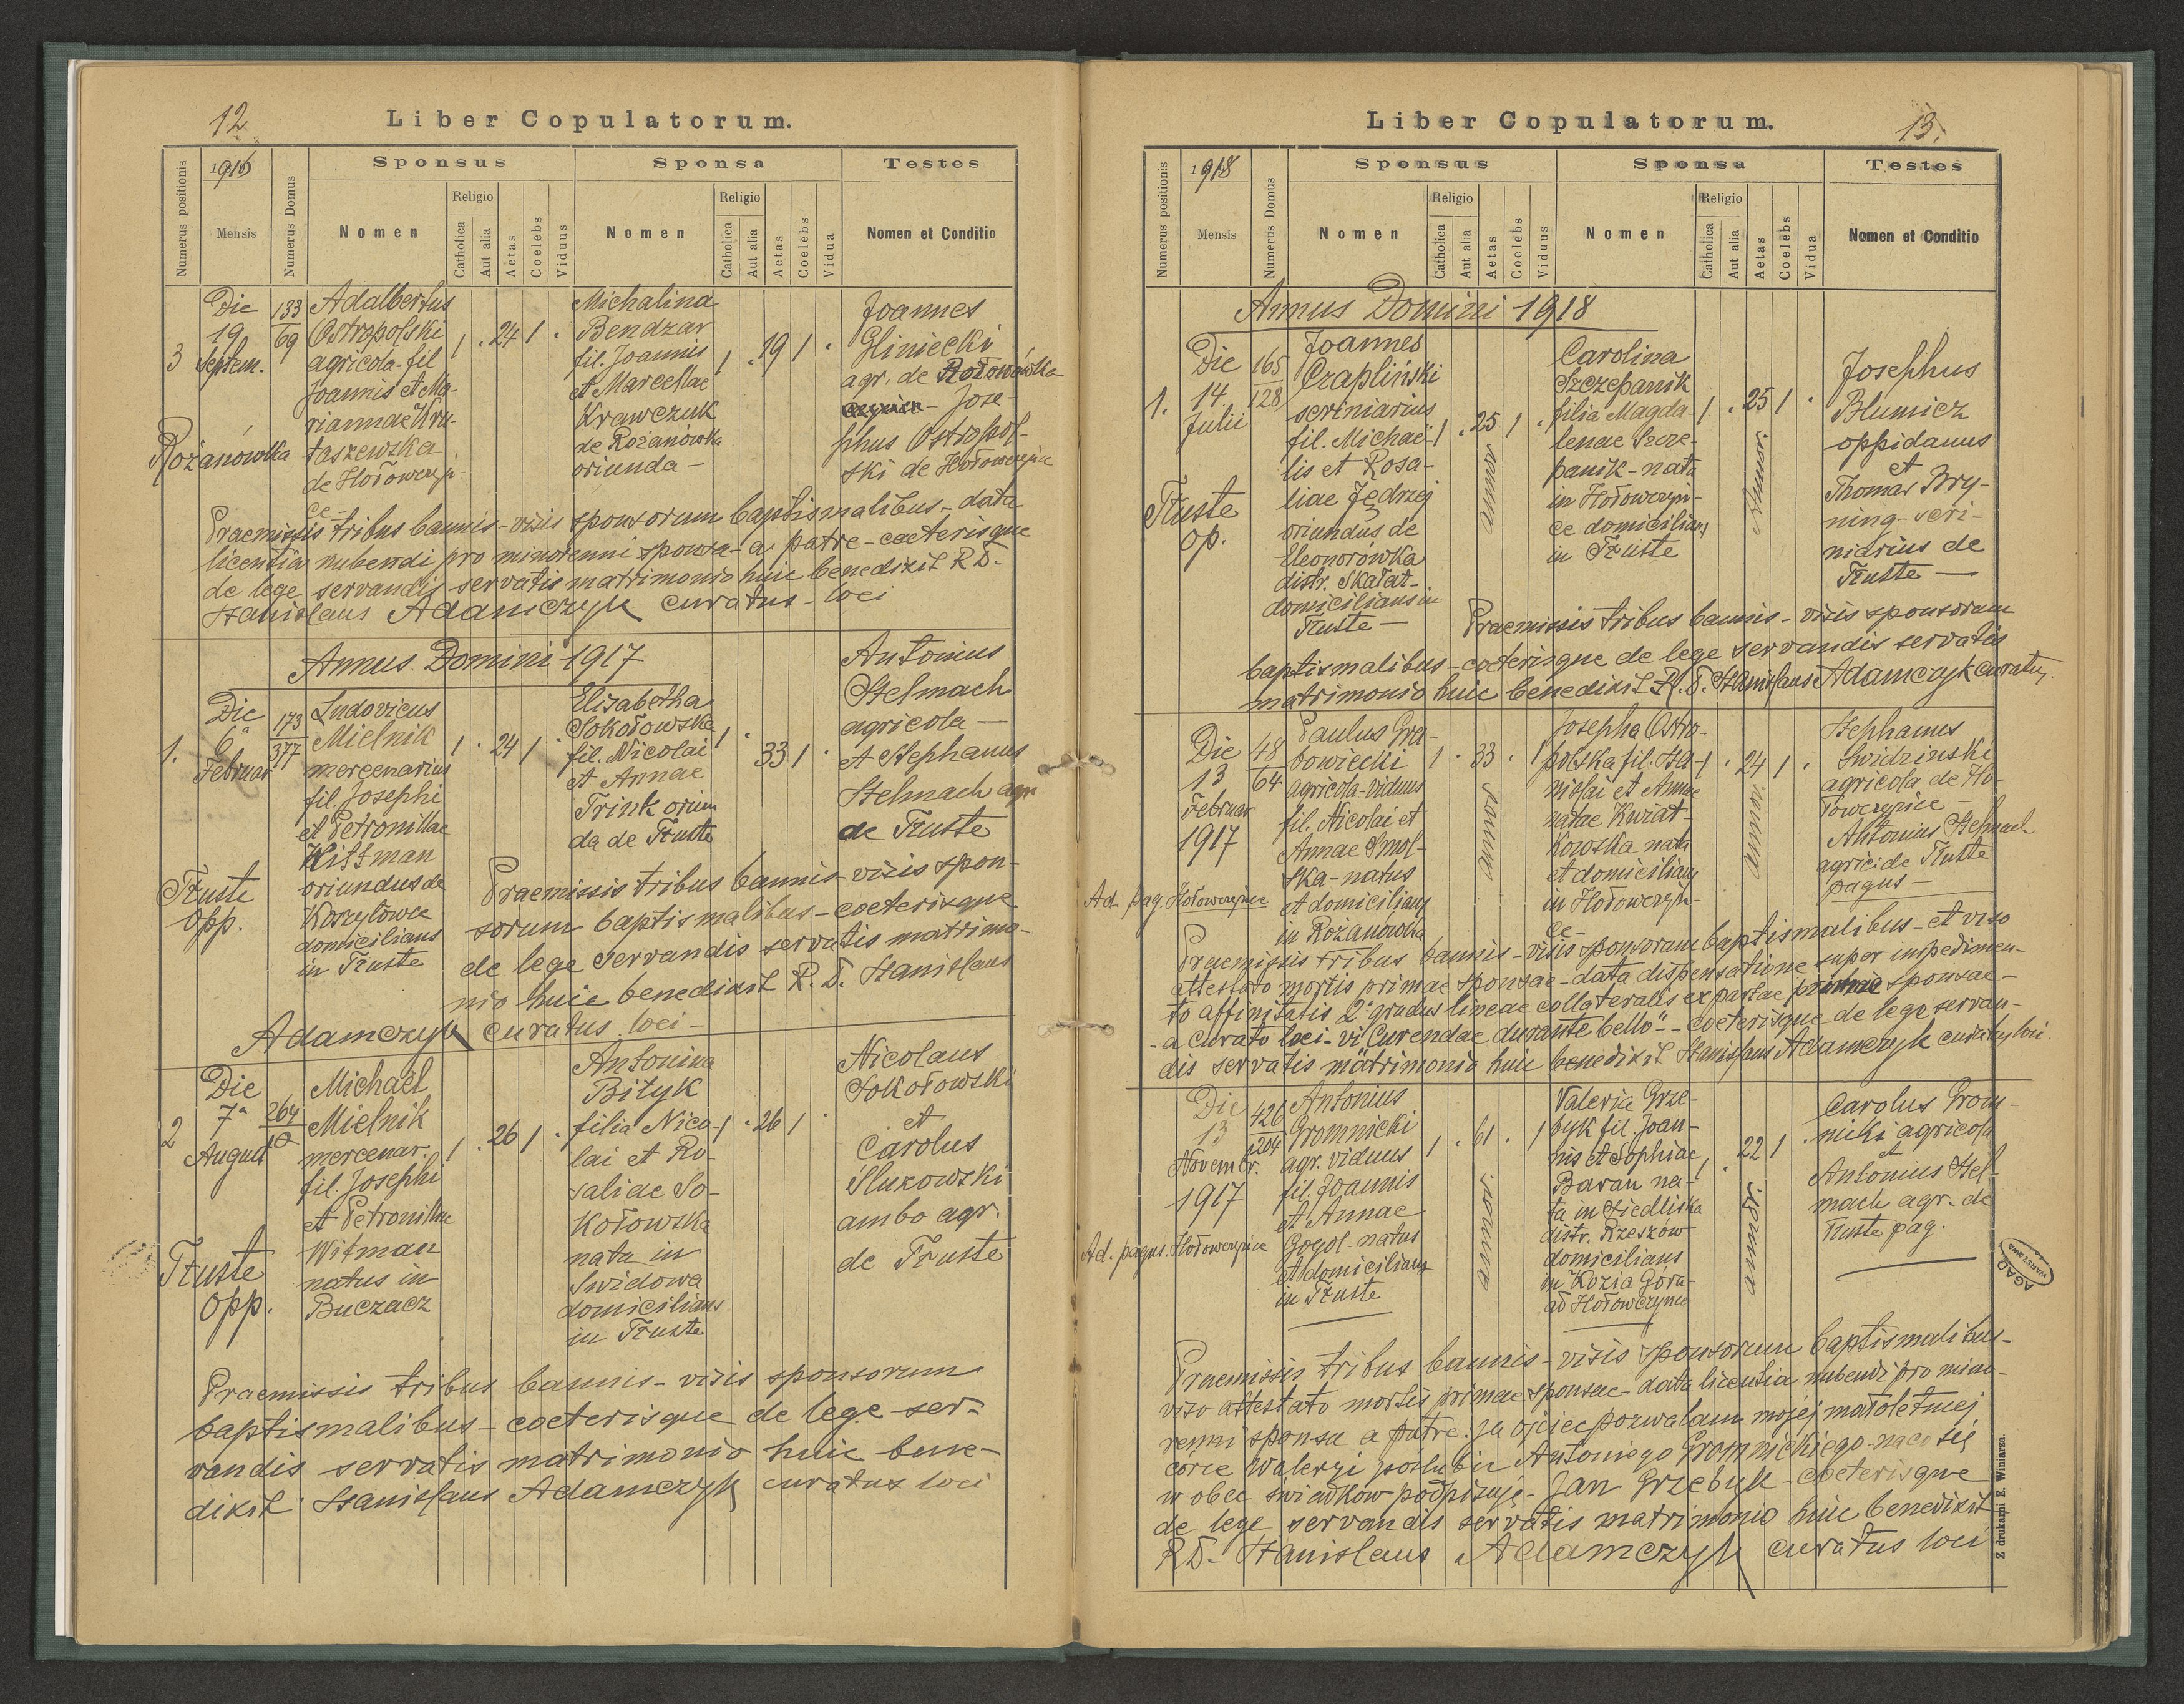 12
Liber Copulatorum.
Numerus positionis
1916
Mensis
Numerus Domus
Sponsus
Sponsa
Testes
Nomen
Religio
Catholica
Aut alia
Aetas
Coelebs
Viduus
Nomen
Religio
Catholica
Aut alia
Aetas
Coelebs
Vidua
Nomen et Conditio
3
Die
19
Septem.
Rożanówka
133
69
Adalbertus
Ostropolski
agricola - fil
Joannis et Ma-
riannae Kru-
taszewska
de Hołowczyń-
ce -
1 . 24 1 .
Michalina
Bendzar
fil. Joannis
et Marcellae
Krawczuk
de Rożanówka
oriunda -
1 . 19 1 .
Joannes
Gliniecki
agr. de
- Jose-
phus Ostropol-
ski de Hołowczyńce
Praemissis tribus bannis - visis sponsorum baptismalibus - data
licentia nubendi pro minorenni sponsa - a patre - caeterisque
de lege servandis - servatis matrimonio huic benedixit R. D.
Stanislaus Adamczyk curatus - loci
Annus Domini 1917
1.
Die
6a
Februar
Tłuste
Opp.
173
377
Ludovicus
Mielnik
mercenarius
fil. Josephi
et Petronillae
Wittman
oriundus de
Korzylowce
domicilians
in Tłuste
1 . 24 1 .
Elisabetha
Sokołowska
fil. Nicolai
et Annae
Trink oriun
da de Tłuste
1 . 33 1 .
Antonius
Stelmach
agricola -
et Stephanus
Stelmach agr
de Tłuste
Praemissis tribus bannis - visis spon-
sorum baptismalibus - coeterisque
de lege servandis servatis matrimo-
nio huic benedixit R. D. Stanislaus
Adamczyk curatus loci -
2
Die
7a
August
Tłuste
Opp.
264
Michaël
Mielnik
mercenar.
fil. Josephi
et Petronillae
Witman
natus in
Buczacz
1 . 26 1 .
Antonina
Bityk
filia Nico-
lai et Ro-
saliae So-
kołowska
nata in
Swidowa
domicilians
in Tłuste
1 . 26 1 .
Nicolaus
Sokołowski
et
Carolus
Ślukowski
ambo agr.
de Tłuste
Praemissis tribus bannis - visis sponsorum
baptismalibus - coeterisque de lege ser-
vandis servatis matrimonio huic bene-
dixit Stanislaus Adamczyk curatus loci
13.
Liber Copulatorum.
Numerus positionis
1918
Mensis
Numerus Domus
Sponsus
Sponsa
Testes
Nomen
Religio
Catholica
Aut alia
Aetas
Coelebs
Viduus
Nomen
Religio
Catholica
Aut alia
Aetas
Coelebs
Vidua
Nomen et Conditio
Annus Domini 1918
1.
Die
14
Julii
Tłuste
op.
165
128
Joannes
Czapliński
scriniarius
fil. Michaë-
lis et Rosa-
liae Jędrzej
oriundus de
Eleonorówka
distr. Skałat-
domicilians in
Tłuste -
1 . 25 1 .
annor.
Carolina
Szczepanik
filia Magda-
lenae Szcze-
panik - nata
in Hołowczyń-
ce domicilians
in Tłuste
1 . 25 1 .
annor.
Josephus
Blumicz
oppidanus
et
Thomas Bry-
ning - scri-
niarius de
Tłuste -
Praemissis tribus bannis - visis sponsorum
baptismalibus - coeterisque de lege servandis servatis
matrimonio huic benedixit R. D. Stanislaus Adamczyk curatus.
Die
13
Februar
1917
Ad. pag. Hołowczyńce
48
64
Paulus Gra-
bowiecki
agricola - viduus
fil. Nicolai et
Annae Smol-
ska - natus
et domicilians
in Rożanówka
1 . 33 . 1
annor.
Josepha Ostro-
polska fil. Sta-
nislai et Annae
natae Kwiat-
kowska nata
et domicilians
in Hołowczyń-
ce -
1 . 24 1 .
annor.
Stephanus
Swidzinski
agricola de Ho-
łowczyńce -
Antonius Stelmach
agric. de Tłuste
pagus -
Praemissis tribus bannis - visis sponsorum baptismalibus - et viso
attestato mortis primae sponsae - data dispensatione super impedimen-
to affinitatis 2i gradus lineae collateralis ex partae primae sponsae -
- a curato loci - vi Curendae "durante bello" - coeterisque de lege servan-
dis servatis matrimonio huic benedixit Stanislaus Adamczyk curatus loci.
Die
13
Novembr.
1917
Ad. pagus. Hołowczyńce
426
1204
Antonius
Gromnicki
agr. viduus
fil. Joannis
et Annae
Gogol - natus
et domicilians
in Tłuste
1 . 61 . 1
annor.
Valeria Grze-
byk fil Joan-
nis et Sophiae
Baran na-
ta in Siedliska
distr. Rzeszów
domicilians
in Kozia Góra-
ad Hołowczyńce
1 . 22 1 .
annor.
Carolus Grom-
nicki agricola
et
Antonius Stel-
mach agr. de
Tłuste pag.
AGAD
WARSZAWA
Praemissis tribus bannis - visis sponsorum baptismalibus -
viso attestato mortis primae sponsae - data licentia nubendi pro mino-
renni sponsa a patre. Ja ojciec pozwalam mojej małoletniej
córce Waleryi poślubić Antoniego Gromnickiego - na co się
w obec świadków podpisuję - Jan Grzebyk - coeterisque
de lege servandis servatis matrimonio huic benedixit
R D. Stanislaus Adamczyk curatus loci
Z drukarni E. Winiarza.